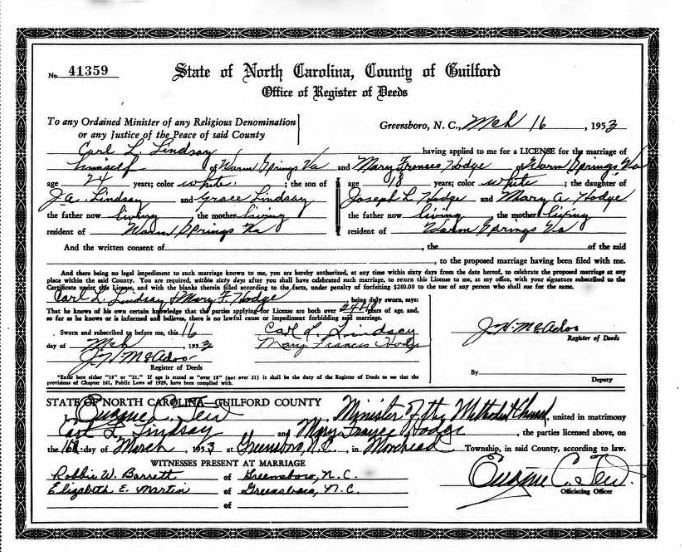 No. 41359
State of North Carolina, County of Guilford
Office of Register of Deeds
To any Ordained Minister of any Religious Denomination
or any Justice of the Peace of said County
Greensboro, N. C., Mch 16, 1953
Carl L. Lindsay having applied to me for a LICENSE for the marriage of
himself of Warm Springs Va and Mary Frances Hodge of Warm Springs, Va
age 24 years; color white; the son of
age 18 years; color white; the daughter of
J.A. Lindsay and Grace Lindsay
Joseph L. Hodge and Mary A. Hodge
the father now living, the mother living
the father now living the mother living
resident of Warm Springs Va
resident of Warm Springs Va
And the written consent of , the of the said
, to the proposed marriage having been filed with me.
And there being no legal impediment to such marriage known to me, you are hereby authorized, at any time within sixty days from the date hereof, to celebrate the proposed marriage at any
place within the said County. You are required, within sixty days after you shall have celebrated such marriage, to return this License to me, at my office, with your signature subscribed to the
Certificate under this License, and with the blanks therein filled according to the facts, under penalty of forfeiting $200.00 to the use of any person who shall sue for the same.
Carl L. Lindsay & Mary F. Hodge being duly sworn, says:
That he knows of his own certain knowledge that the parties applying for License are both over years of age and,
so far as he knows or is informed and believes, there is no lawful cause or impediment forbidding said marriage.
Sworn and subscribed to before me, this 16
day of Mch, 1953
Carl L. Lindsay
Mary Francis Hodge
J. H. McAdoo
Register of Deeds
J. H. McAdoo
Register of Deeds
By
Deputy
"Enter here either "18" or "21." If age is stated as "over 18" (not over 21) it shall be the duty of the Register of Deeds to see that the
provisions of Chapter 161, Public Laws of 1929, have been complied with.
STATE OF NORTH CAROLINA—GUILFORD COUNTY
I, Eugene C. Few, Minister of the Methodist Church, united in matrimony
Carl L. Lindsay and Mary Hodge, the parties licensed above, on
the 16 day of March, 1953 at Greensboro, N.C., in Morehead Township, in said County, according to law.
WITNESSES PRESENT AT MARRIAGE
Robbie W. Barrett of Greensboro, N.C.
Elizabeth E. Martin of Greensboro, N.C.
of
Eugene C. Few
Officiating Officer